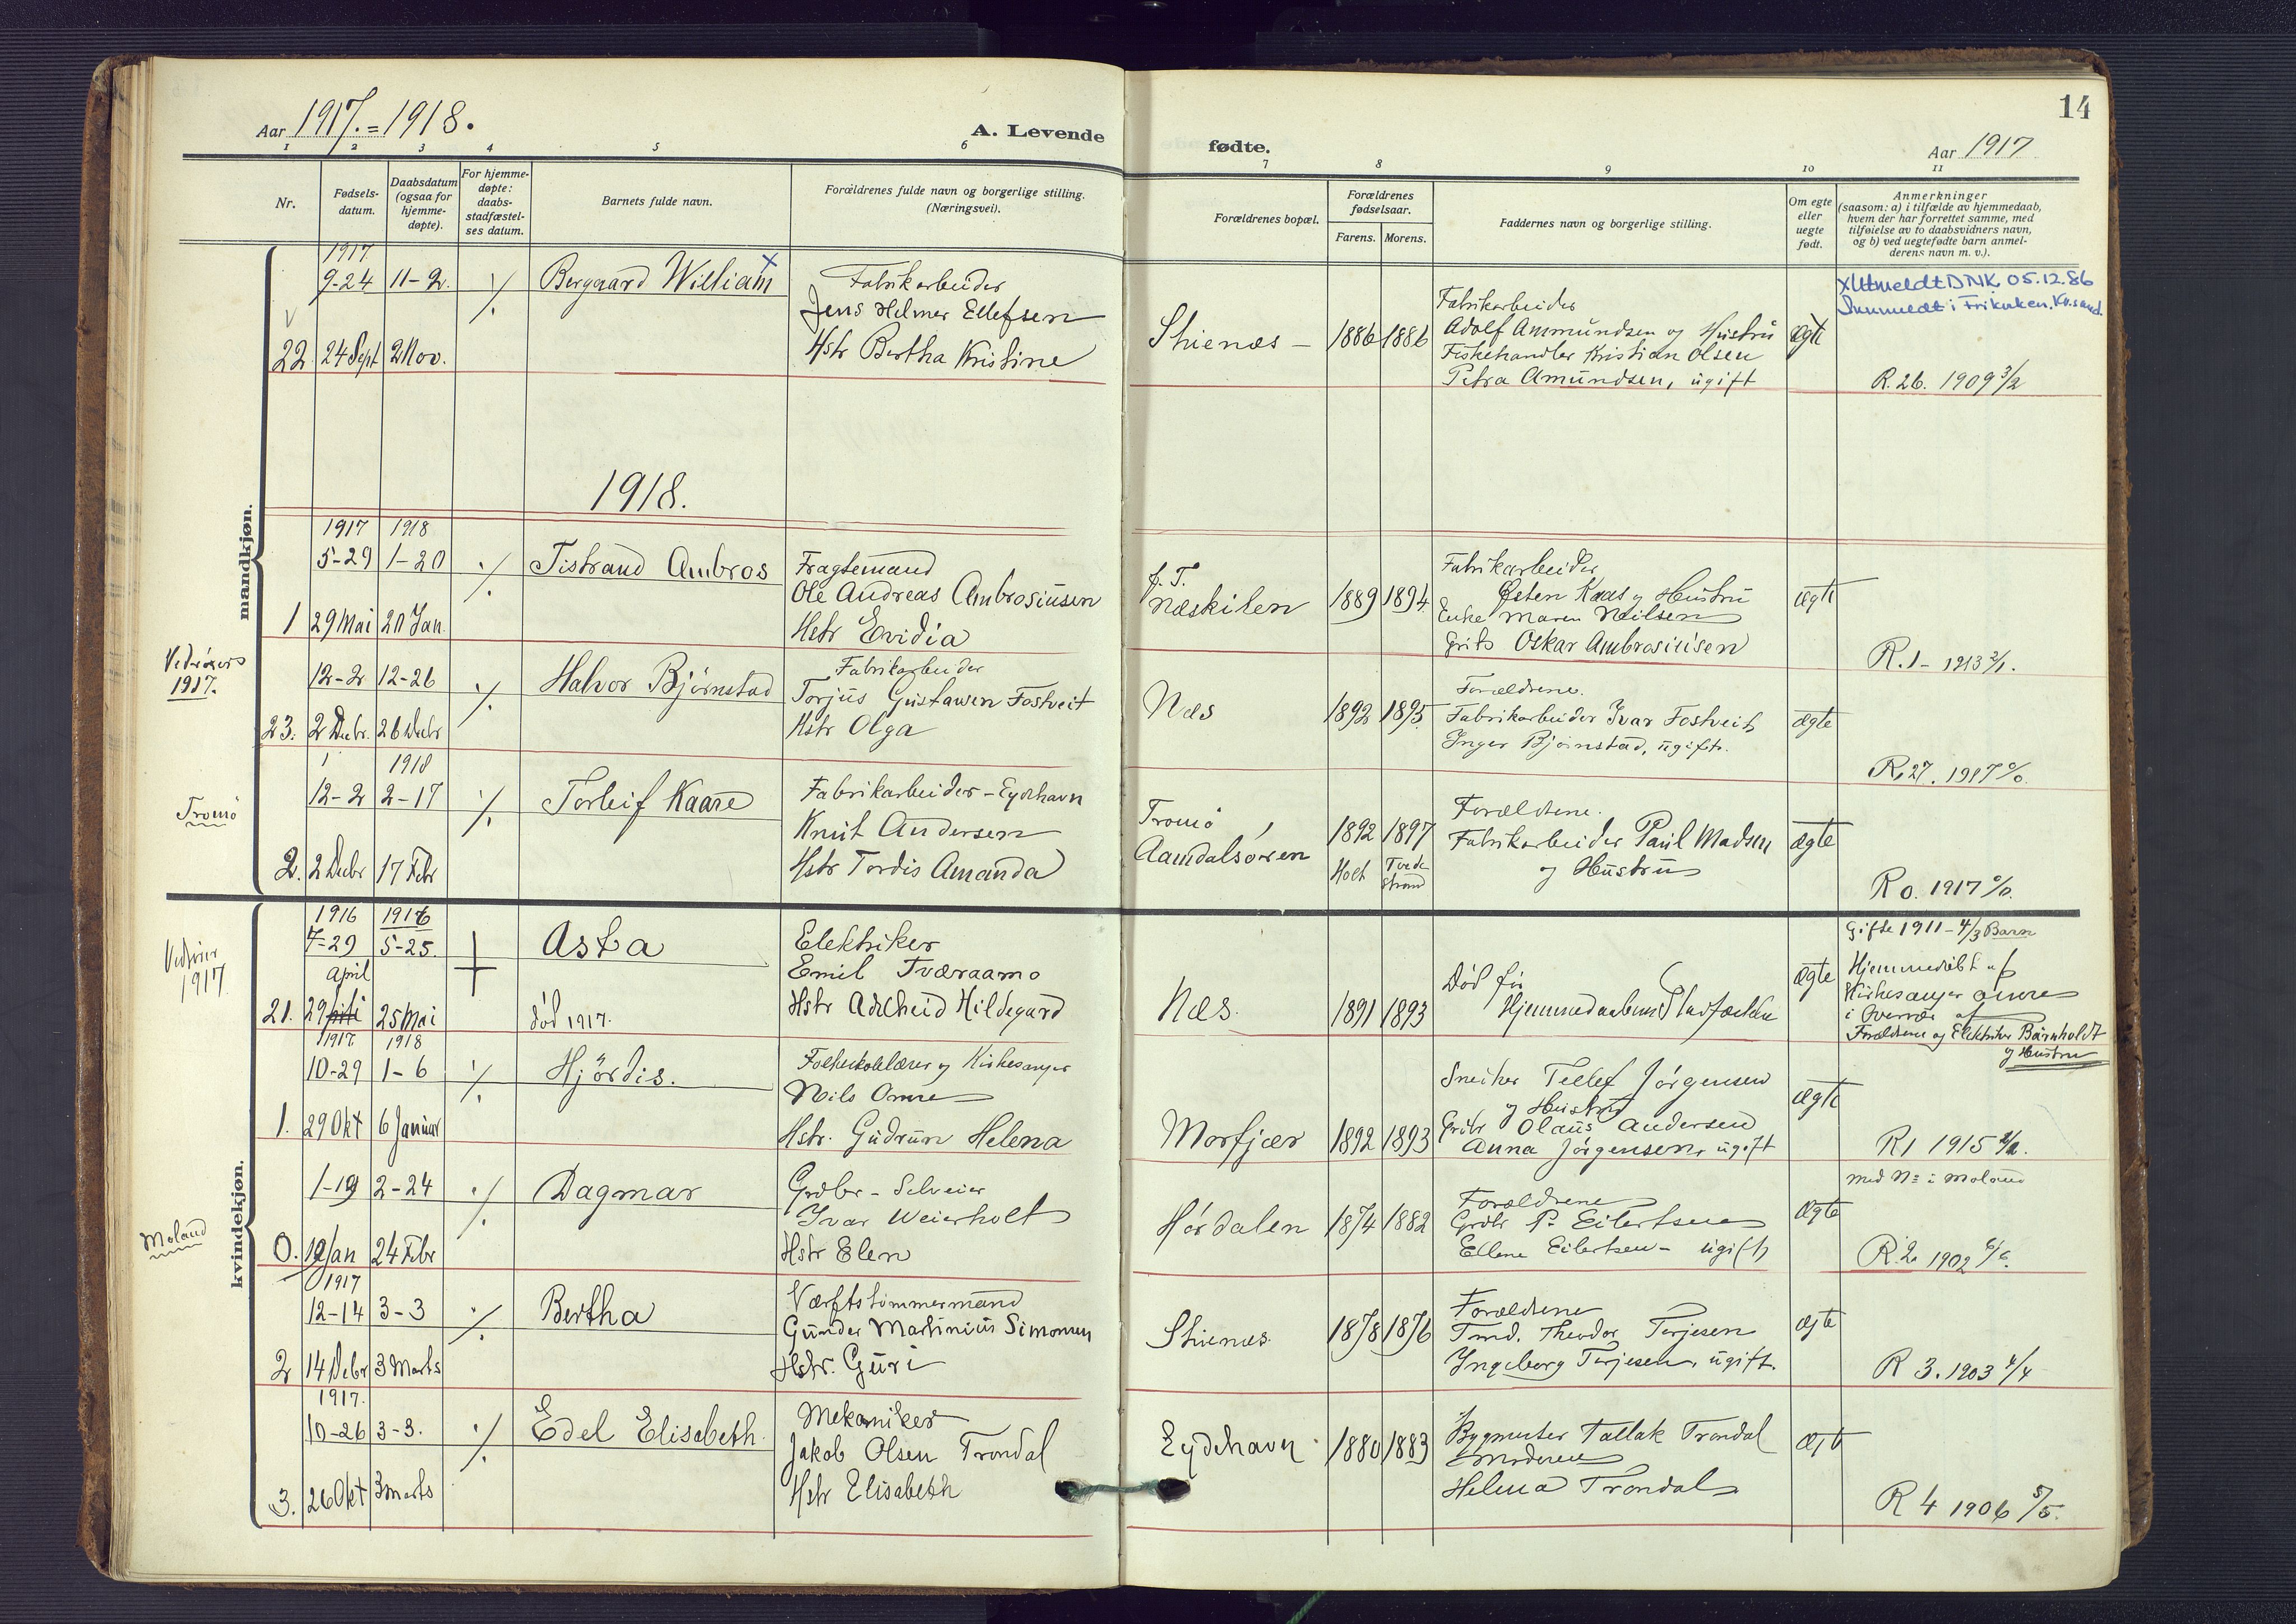 14
Aar 1917. = 1918.
A. Levende fødte.
Aar 1917
1 2 3 4 5 6 7 8 9 10 11
Nr.
Fødsels-
datum.
Daabsdatum
(ogsaa for
hjemme-
døpte).
For hjemme-
døpte:
daabs-
stadfæstel-
ses datum.
Barnets fulde navn.
Forældrenes fulde navn og borgerlige stilling.
(Næringsvei).
Forældrenes bopæl.
Forældrenes
fødselsaar.
Farens. Morens.
Faddernes navn og borgerlige stilling.
Om egte
eller
uegte
født.
Anmerkninger
(saasom: a) i tilfælde av hjemmedaab,
hvem der har forrettet samme, med
tilføielse av to daabsvidners navn,
og b) ved uegtefødte barn anmel-
derens navn m. v.).
mandkjøn.
1917
9-24 11-2. ./. Bergaard William x
Fabrikarbeider
Jens Helmer Ellefsen
22. 24 Sept 2 Nov.
Hstr Bertha Kristine
Stienæs – 1886 1886
Fabrikarbeider
Adolf Ammundsen og Hustru
Fiskehandler Kristian Olsen
Petra Amundsen, ugift
ægte
x Utmeldt DNK 05.12.86
Innmeldt i Frikirken. Kr.sand.
R. 26. 1909 3/2
1918.
1917 1918
5-29 1-20 ./. Tistrand Ambros
Fragtemand
Ole Andreas Ambrosiusen
1 29 Mai 20 Jan.
Hstr Evidia
p. T.
Næskilen 1889 1894
Fabrikarbeider
Østen Kaas og Hustru
Enke Maren Neilsen
Grits Oskar Ambrosiusen
ægte
R. 1 – 1913 2/1.
1917.
12-2 12-26 ./. Halvor Bjørnstad
Fabrikarbeider
Torjus Gustavsen Fostveit
23. 2 Decbr. 26 Decbr
Hstr Olga
Næs 1892 1895
Forældrene.
Fabrikarbeider Ivar Fostveit
Inger Bjørnstad, ugift.
ægte
R. 27. 1917 0/0.
Tromö
1918
12-2 2-17 ./. Torleif Kaare
Fabrikarbeider – Eydehavn
Knut Andersen
2. 2 Decbr 17 Febr
Hstr Tordis Amanda
Tromö,
Aamdalsøren
1892 1897
Holt Tvede-
strand
Forældrene.
Fabrikarbeider Paul Madsen
og Hustru
ægte
R 0. 1917 0/0.
kvindekjøn.
1917
1916 1916
7-29 5-25. + Asta
april
Elektriker
Emil Tværaamo
21. 29 25 Mai
død 1917.
Hstr Adelheid Hildegard
Næs. 1891 1893
Død før
Hjemmedaabens
ægte
Gifte 1911 – 4/3 Barn
Hjemmedøbt af
Kirkesanger Omre
i Overvær af
Forældrene og Elektriker Barnholdt
og Hustru
1917 1918
10-29 1-6 ./. Hjördis.
Folkeskolelærer og Kirkesanger
Nils Omre
1. 29 Okt 6 Januar
Hstr. Gudrun Helena
Morfjær 1892 1893
Sneiker Tellef Jørgensen
og Hustru
Grdbr Olaus Andersen
Anna Jørgensen, ugift
ægte
R 1 1915 2/2.
Moland
1-19 2-24 ./. Dagmar
Grdbr – Selveier
Ivar Weierholt
0. 19 Jan 24 Febr
Hstr Elen
Hördalen 1874 1882
Forældrene
Grdbr P. Eilertsen
Ellene Eilertsen – ugift
ægte
med No i Moland
R. 2. 1902 6/6.
1917
12-14 3-3 ./. Bertha
Værftstømmermand
Gunder Martinius Simonsen
2 14 Debr 3 Marts
Hstr. Guri
Stienæs. 1878 1876
Forældrene
Tmd. Theodor Terjesen
Ingeborg Terjesen, ugift.
ægte
R 3. 1903 4/4
1917.
10-26 3-3. ./. Edel Elisabeth.
Mekaniker
Jakob Olsen Trondal
3. 26 Okt 3 Marts
Hstr Elisabeth
Eydehavn. 1880 1883
Bygmester Tallak Trondal
Moderen
Helena Trondal
ægte
R 4 1906 5/5.